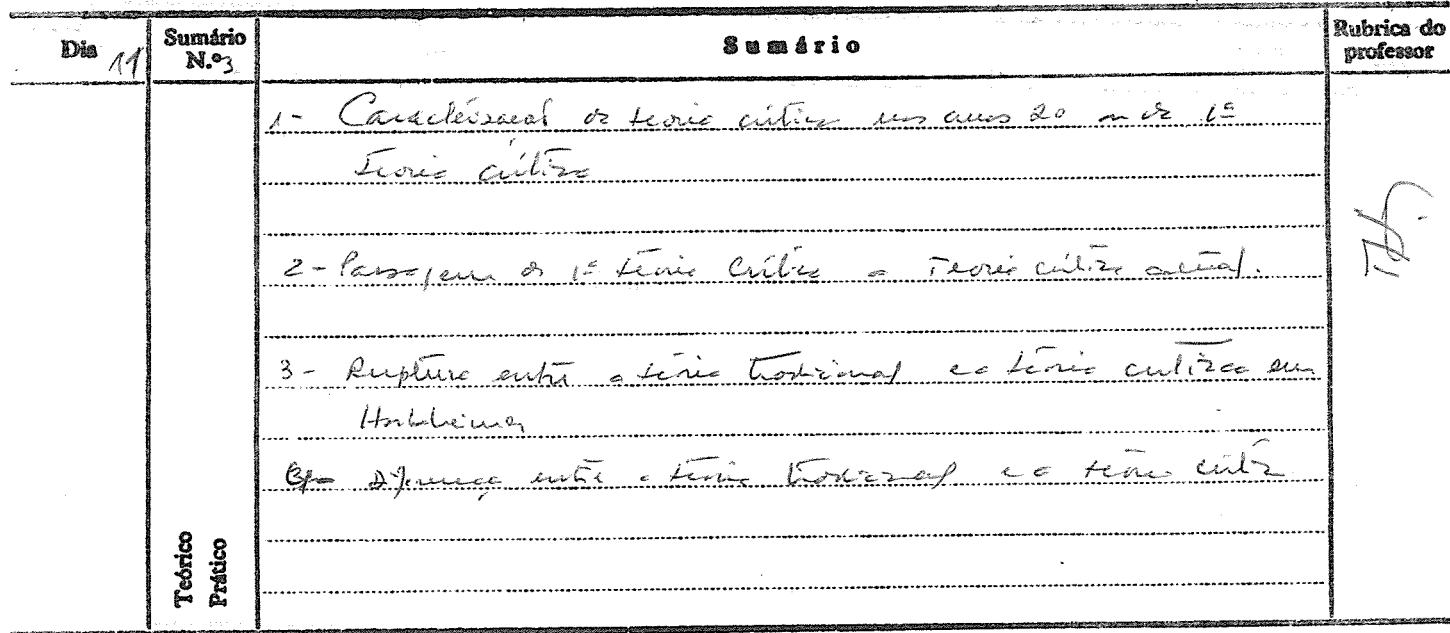 Dia 11
Sumário N.º 3
Sumário
Rubrica do professor
1- da teoria crítica nos anos 20 da 1ª
teoria crítica
2- Passagem da 1ª teoria Crítica a Teoria crítica actual.
3- Ruptura entre a teoria tradicional e a teoria crítica em
Horkheimer
Diferença entre a teoria tradicional e a teoria crítica
Teórico
Prático